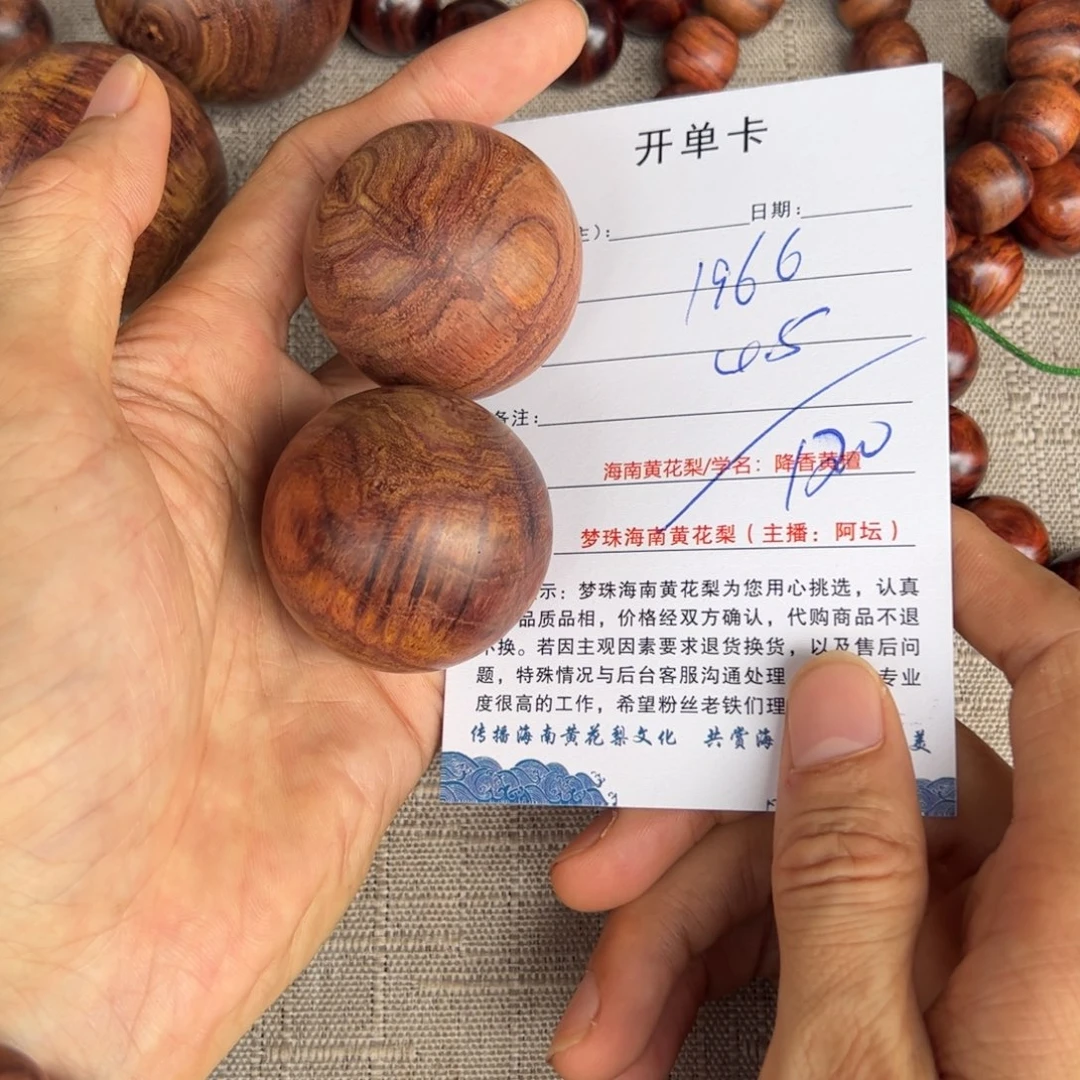 开单卡
主）： 日期：
1966
45
备注：
120
海南黄花梨/学名：降香黄檀
梦珠海南黄花梨（主播：阿坛）
示：梦珠海南黄花梨为您用心挑选，认真
品质品相，价格经双方确认，代购商品不退
不换。若因主观因素要求退货换货，以及售后问
题，特殊情况与后台客服沟通处理 专业
度很高的工作，希望粉丝老铁们理
传播海南黄花梨文化 共赏海 美